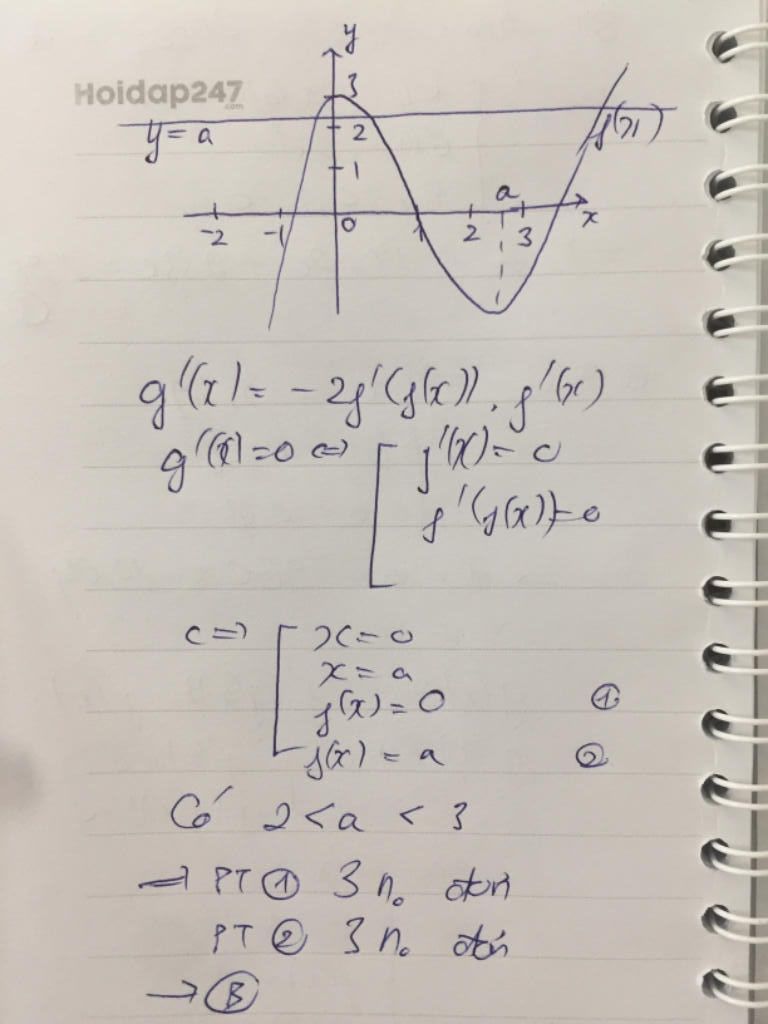 y
Hoidap247
.com
3
y = a
2
f(x)
1
a
-2 -1 0 1 2 3 x
g'(x) = -2f'(f(x)). f'(x)
g'(x) = 0 <=> [ f'(x) = 0
f'(f(x)) = 0
<=> [ x = 0
x = a
f(x) = 0 ①
f(x) = a ②
Có 2 < a < 3
=> PT ① 3 n₀ đơn
PT ② 3 n₀ đơn
→ Ⓑ